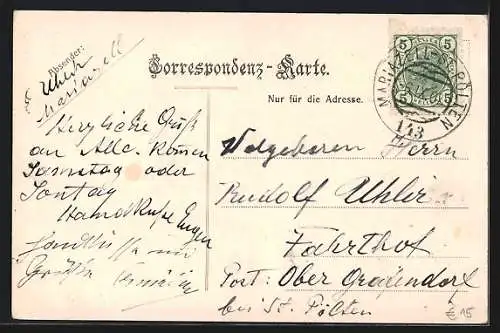 Absender:
Uhlir
Mariazell
Correspondenz-Karte.
Nur für die Adresse.
5 5
5 5
MARIAZELL-ST. PÖLTEN
113
Herzliche Gruß
an Alle. Komen
Samstag oder
Sontag
Handkuße Eugen
Wolgeboren Herrn
Rudolf Uhlir
Fahrthof
Post: Ober Grafendorf
bei St. Pölten
€ 15